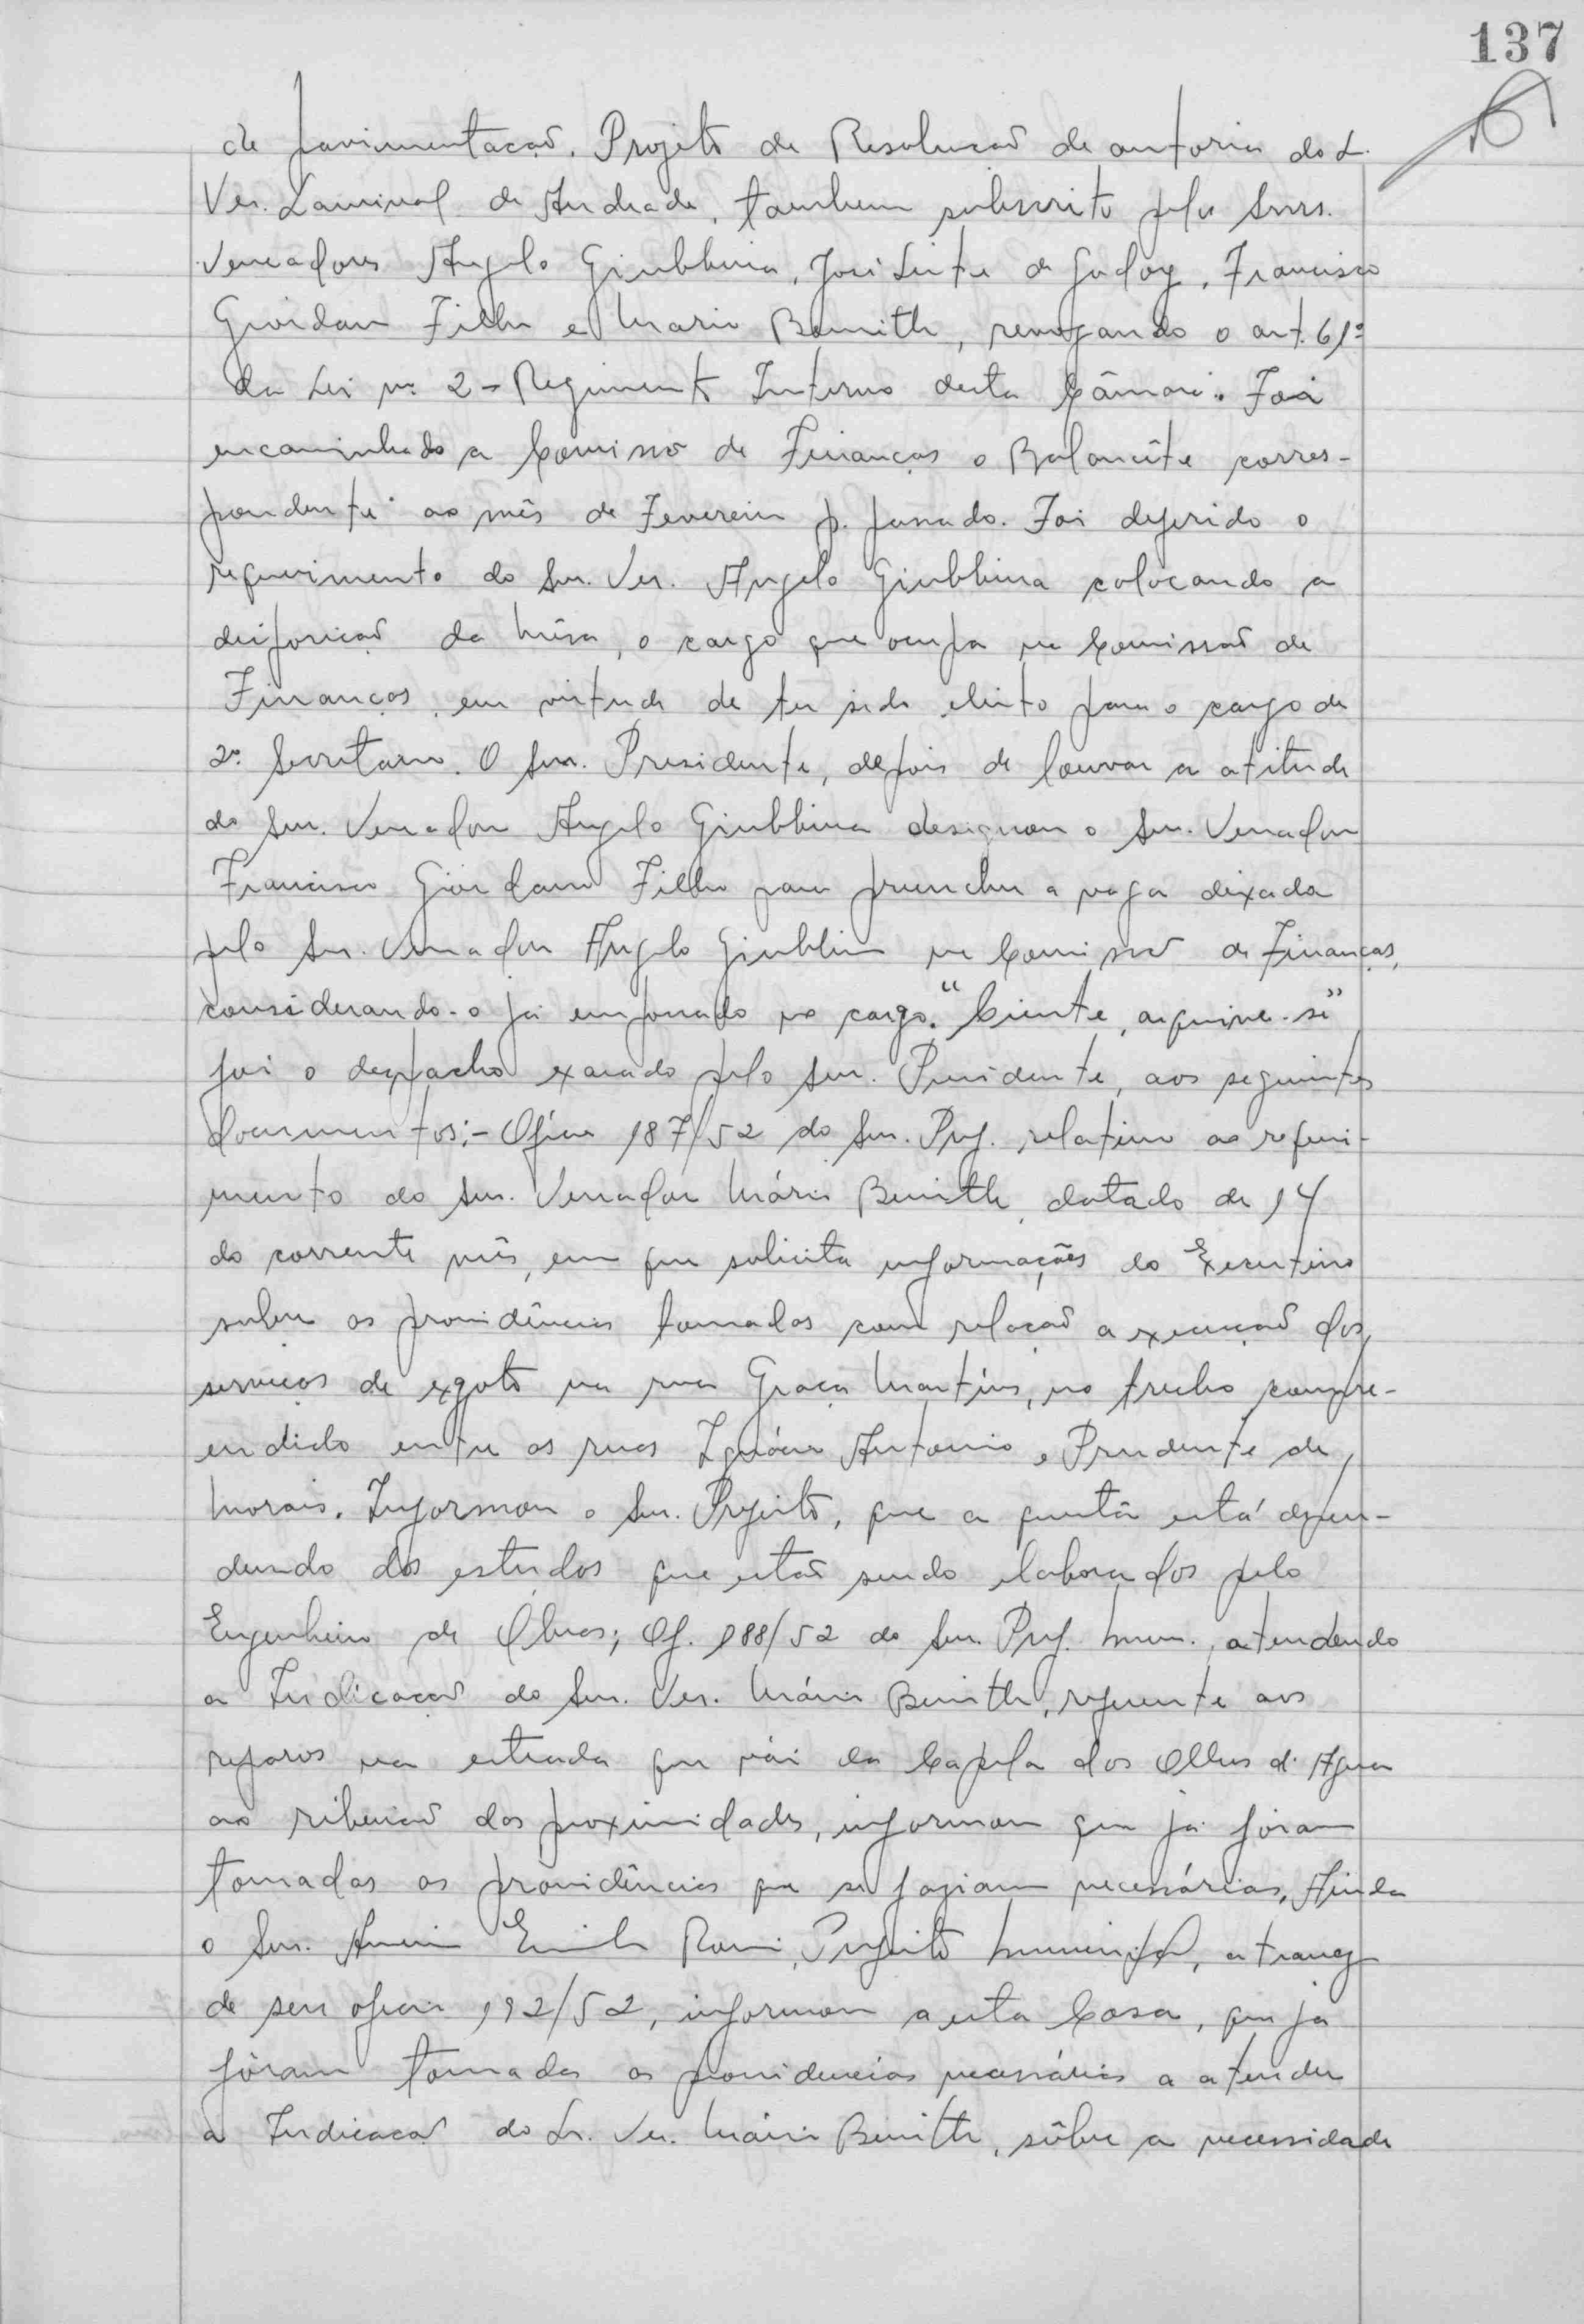 137
de pavimentação. Projeto de Resolução de autoria do S.
Ver. Lourival de Andrade, tambem subscrito pelos Snrs.
Vereadores Angelo Giubbina, José Leite de Godoy, Francisco
Giordano Filho e Mario Benith, revogando o art. 61º
da Lei nº 2 - Regimento Interno desta Câmara. Foi
encaminhado a Comissão de Finanças o Balancête corres-
pondente ao mês de Fevereiro p. passado. Foi deferido o
requerimento do Snr. Ver. Angelo Giubbina colocando a
disposição da Mêsa, o cargo que ocupa na Comissão de
Finanças, em virtude de ter sido eleito para o cargo de
2º Secretario. O Snr. Presidente, depois de louvar a atitude
do Snr. Vereador Angelo Giubbina designou o Snr. Vereador
Francisco Giordano Filho para preencher a vaga deixada
pelo Snr. Vereador Angelo Giubbina na Comissão de Finanças,
considerando-o já empossado no cargo. "Ciente, arquive-se"
foi o despacho exarado pelo Snr. Presidente, aos seguintes
documentos:- Ofício 187/52 do Snr. Pref. relativo ao requeri-
mento do Snr. Vereador Mário Benith, datado de 14
do corrente mês, em que solicita informações do Executivo
sobre as providências tomadas com relação a execução dos
serviços de exgoto na rua Graça Martins, no trecho compre-
endido entre as ruas Ignácio Antonio e Prudente de
Morais. Informou o Snr. Prefeito, que a questão está depen-
dendo dos estudos que estão sendo elaborados pelo
Engenheiro de Obras; Of. 188/52 do Snr. Pref. Mun., atendendo
a Indicação do Snr. Ver. Mário Benith, referente aos
reparos na estrada que vái da Capela dos Olhos d'Agua
ao ribeirão das proximidades, informou que já fôram
tomadas as providências que se faziam necessárias. Ainda
o Snr. Prefeito Municipal, atravez
de seu oficio 192/52, informou a esta Casa, que já
fôram tomadas as providencias necessárias a atender
a Indicação do Sr. Ver. Mário Benith, sôbre a necessidade